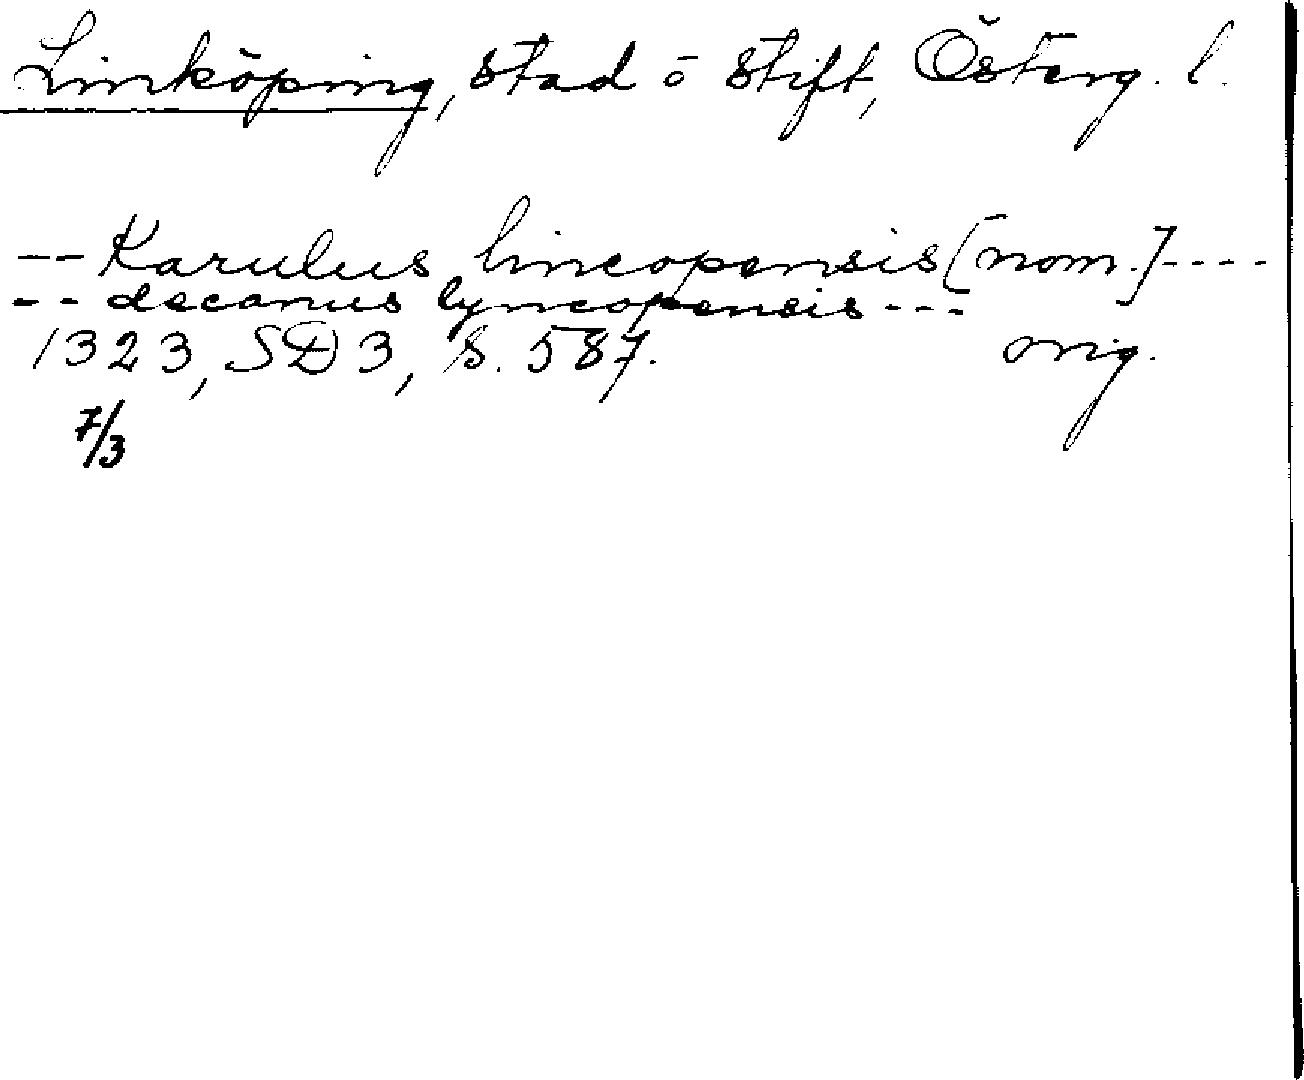 Linköping, stad o stift, Österg. l.
-- Karulus lincopensis [nom.] ----
-- decanus lyncopensis ---
1323, SD 3, S. 587. orig.
7/3